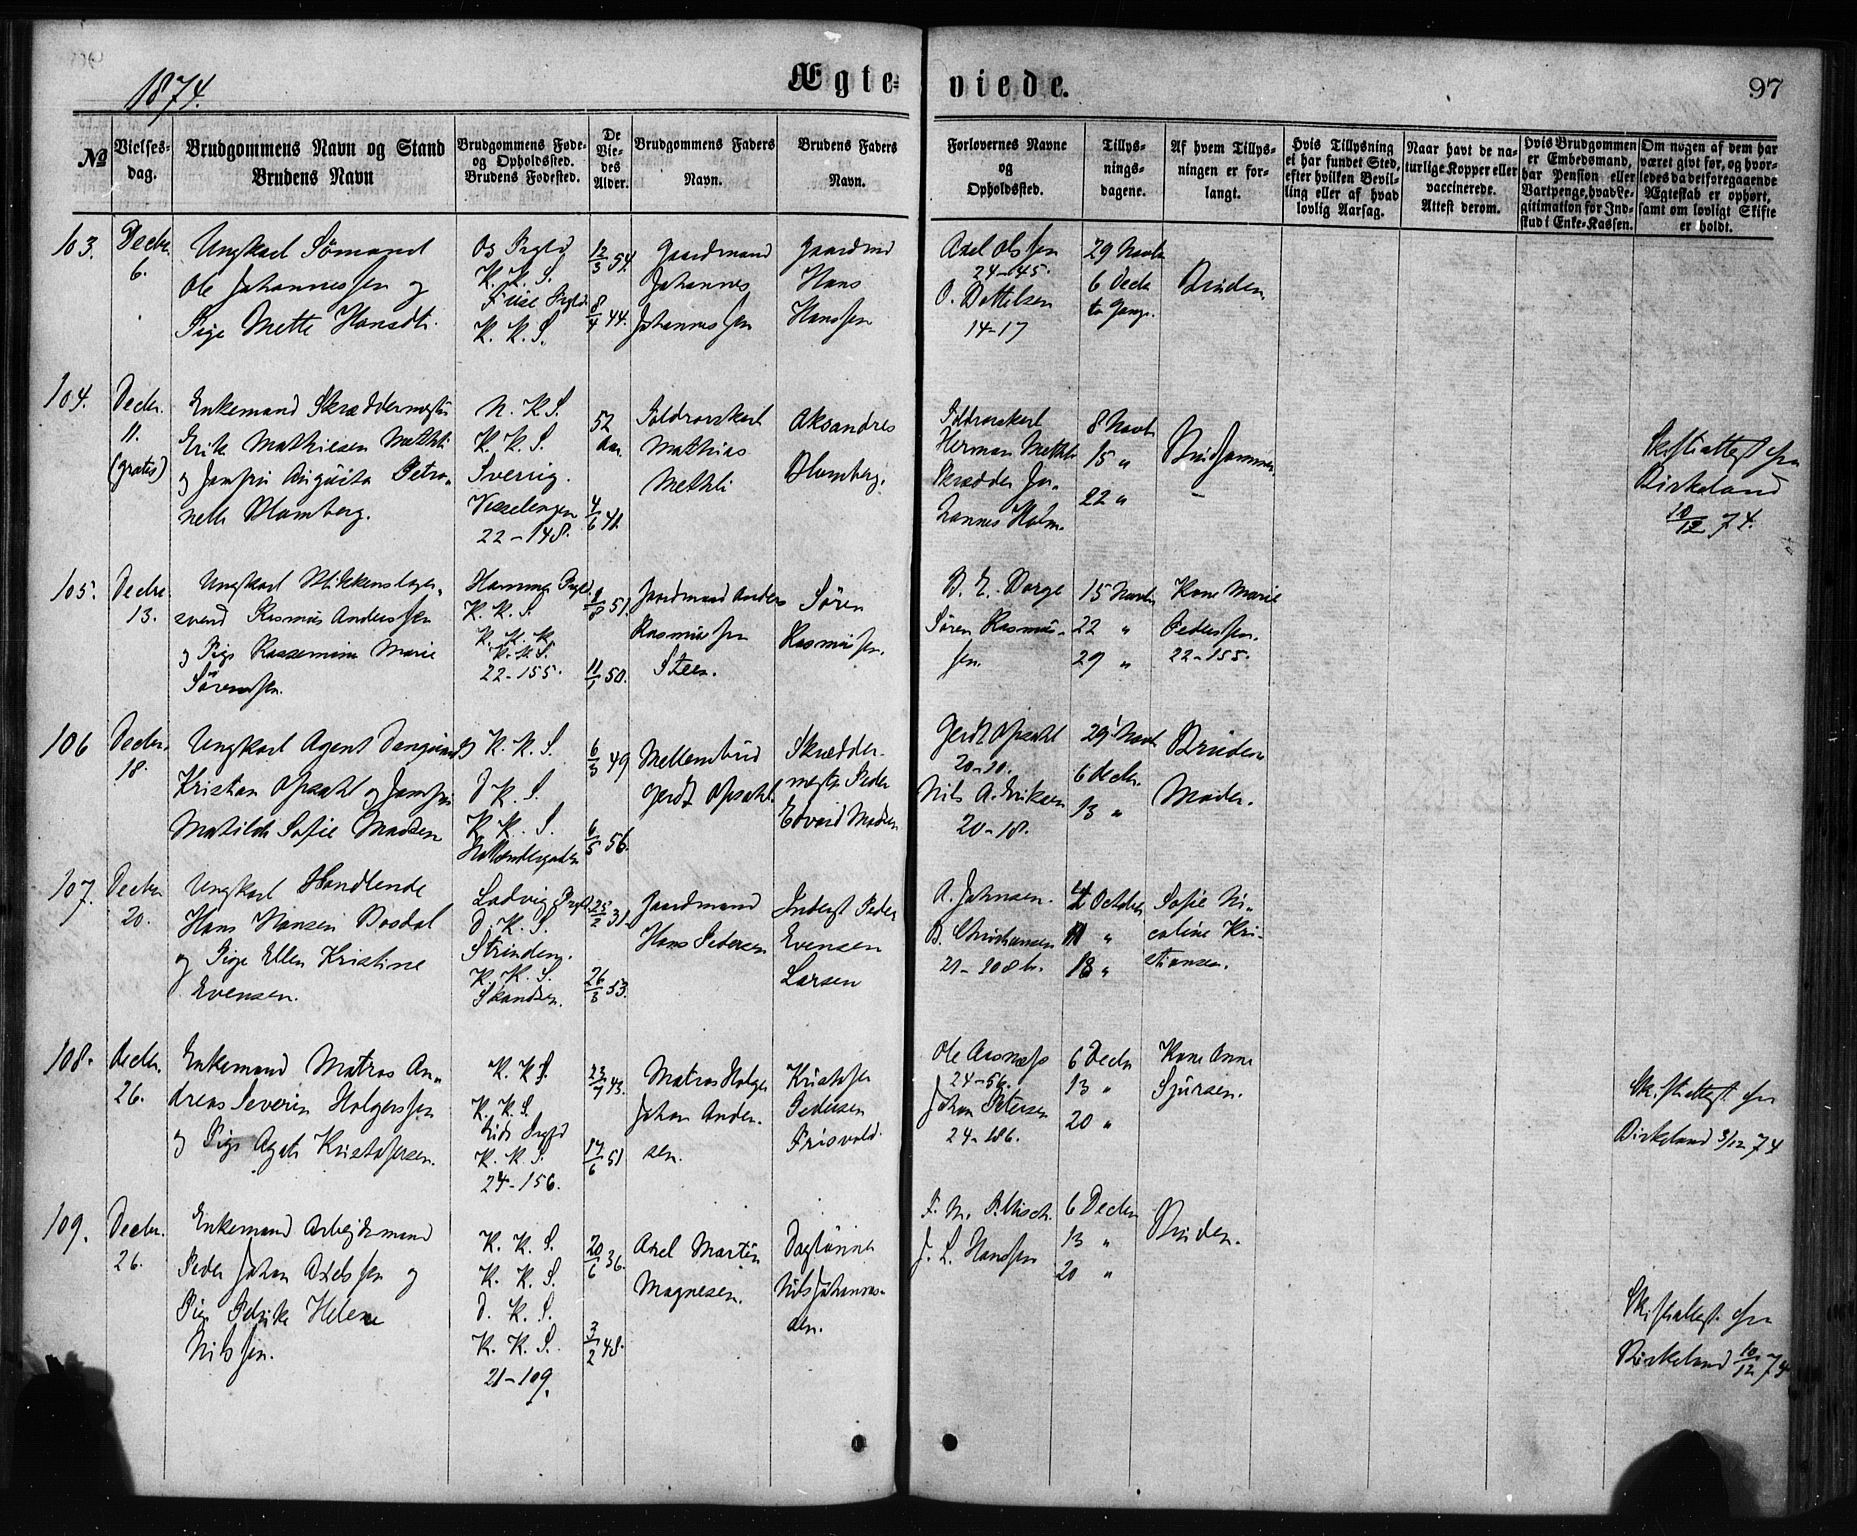 1874.
Ægte-
viede.
97
No
Vielses-
dag.
Brudgommens Navn og Stand
Brudens Navn
Brudgommens Føde-
og Opholdssted.
Brudens Fødested.
De
Vie-
des
Alder.
Brudgommens Faders
Navn.
Brudens Faders
Navn.
Forlovernes Navne
og
Opholdssted.
Tillys-
nings-
dagene.
Af hvem Tillys-
ningen er for-
langt.
Hvis Tillysning
ei har fundet Sted,
efter hvilken Bevil-
ling eller af hvad
lovlig Aarsag.
Naar havt de na-
turlige Kopper eller
vaccinerede.
Attest derom.
Hvis Brudgommen
er Embedsmand,
har Pension eller
Vartpenge, hvad Le-
gitimation for Ind-
skud i Enke-Kassen.
Om nogen af dem har
været givt før, og hvor-
ledes da det foregaaende
Ægteskab er ophørt,
samt om lovligt Skifte
er holdt.
103.
Decbr.
6.
Ungkarl Sømand
Ole Johannessen og
Pige Mette Hansdtr.
Os Prgld
K. K. S.
Prgld
K. K. S.
12/3 54.
8/4 44.
Gaardmand
Johannes
Johannessen
Gaardmd
Hans
Hanssen
Axel Olssen
24-45.
O. Dettelsen
14-17
29 Novbr
6 Decbr
Bruden.
104.
Decbr.
11.
(gratis)
Enkemand Skræddermester
Erik Mathiesen Methli
og Jomfru Augusta Petro-
nelle Blomberg.
N. K. S.
K. K. S.
Sverrig.
22-148.
52
Aar
4/6 41.
Mathias
Methli
Blomberg.
Herman Methli
Skrædder Jo-
hannes Holm.
8 Novbr
15 "
22 "
Brudgommen
Skifteattest fra
Birkeland
10/12 74.
105.
Decbr
13.
Ungkarl Blikkenslager-
svend Rasmus Anderssen
og Pige Rasmine Marie
Sørensen.
Hammer Prgld
K. K. S.
K. K. K.
K. K. S.
22-155.
1/8 51.
11/1 50.
Gaardmand Anders
Rasmussen
Steen.
Søren
Rasmussen.
B. E. Dorge
Søren Rasmus-
sen.
15 Novbr
22 "
29 "
Kone Marie
Pederssen.
22-155.
106
Decbr.
18.
Ungkarl Agent
Kristian Opsahl og Jomfru
Matilde Sofie Madsen
K. K. S.
D. K. S.
K. K. S.
Hollendergaden
6/3 49
6/5 56.
Mellembud
Gerdt Opsahl.
Skrædder-
mester Peder
Edvard Madsen
Gerdt Opsahl
20-20.
Nils A. Eriksen
20-18.
29 Novbr
6 Decbr.
13 "
Brudens
Moder.
107.
Decbr.
20.
Ungkarl Handlende
Hans Hansen Dosdal
og Pige Ellen Kristine
Evensen.
Ladvig Prgld
D. K. S.
Strinden.
K. K. S.
Skandsen.
25/2 31.
26/3 53.
Gaardmand
Hans Pedersen
Inderst Peder
Evensen
Larsen
A. Johnsen.
B. Christiansen
21-108 b.
4 October
11 "
18 "
Sofie Ni-
coline Kri-
stiansen.
108.
Decbr.
26.
Enkemand Matros An-
dreas Severin Holgerssen
og Pige Agate Kristofersen.
K. K. S.
K. K. S.
Prgld
K. K. S.
24-156.
23/7 43.
17/6 51
Matros Holger
Johan Ander-
sen.
Kristofer
Pedersen
Frisvold.
Ole Aasnæs
24-56.
Johan Petersen
24-186.
6 Decbr
13 "
20 "
Kone Anne
Sjursen.
Skifteattest fra
Birkeland 3/12 74
109.
Decbr.
26.
Enkemand Arbeidsmand
Peder Johan Axelssen og
Pige Petrike Helene
Nilssen.
K. K. S.
K. K. S.
D. K. S.
K. K. S.
21-109.
20/6 36.
3/2 48.
Axel Martin
Magnesen.
Dagløнner
Nils Johannes-
sen.
J. L. Hanssen
6 Decbr
13 "
20 "
Bruden.
Skifteattest fra
Birkeland 10/12 74